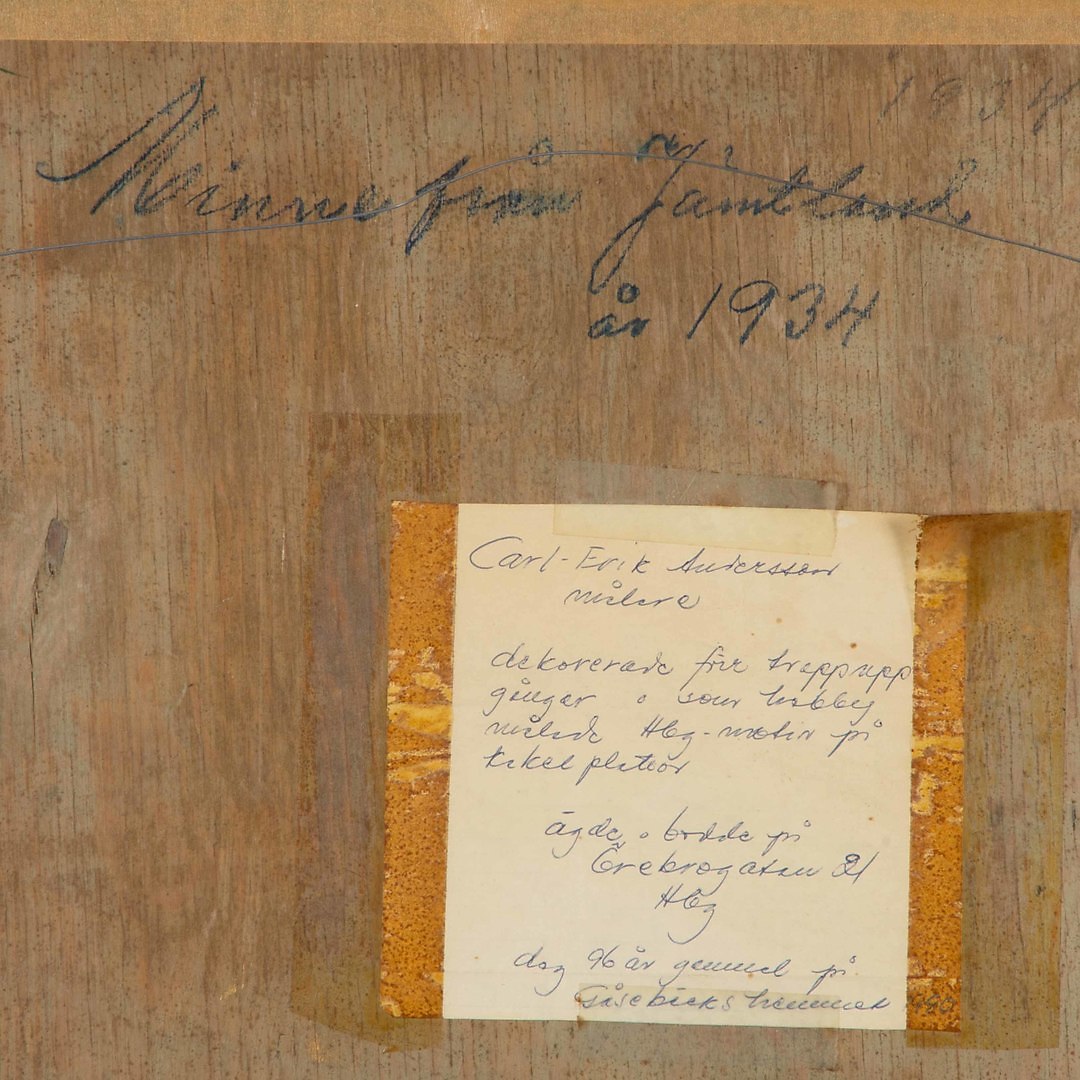 1934
Minne från Jämtland
år 1934
Carl-Erik Andersson
målare
dekorerade förr trappupp
gångar o som hobby
målade Hbg-motiv på
kakelplattor
ägde o bodde på
Örebrogatan 21
Hbg
dog 96 år gammal på
Gåsebäckshemmet